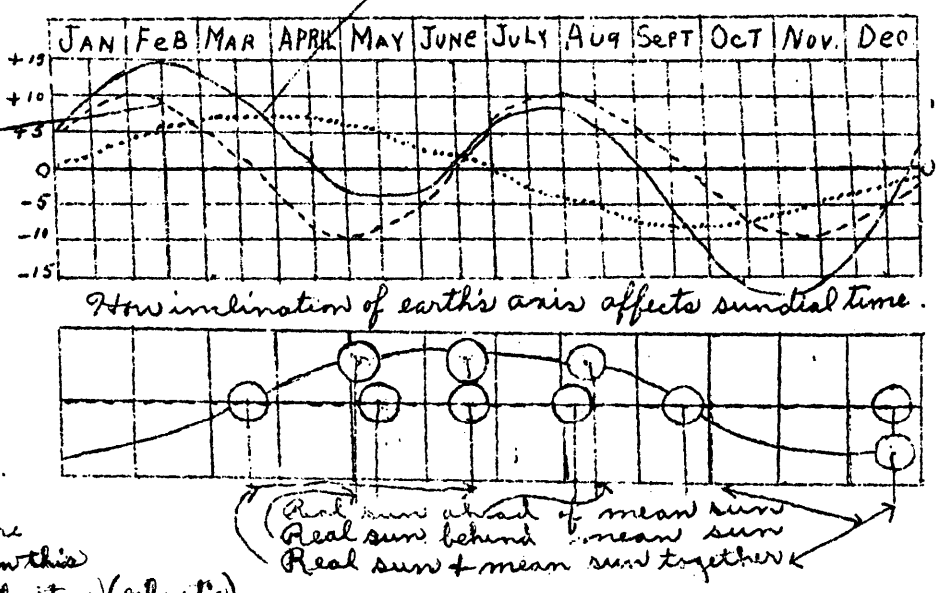 JAN FEB MAR APRIL MAY JUNE JULY AUG SEPT OCT NOV. DEC
+15
+10
+5
0
-5
-10
-15
How inclination of earth's axis affects sundial time.
Real sun ahead of mean sun
Real sun behind mean sun
Real sun & mean sun together
this